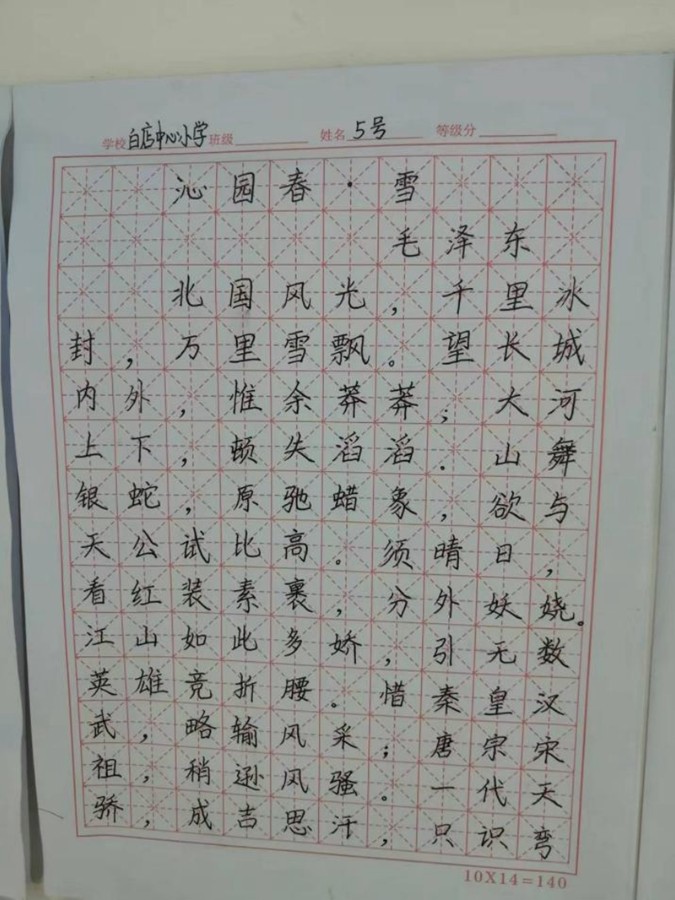 学校 白店中心小学 班级 姓名 5号 等级分
沁园春·雪
毛泽东
北国风光，千里冰
封，万里雪飘。望长城
内外，惟余莽莽；大河
上下，顿失滔滔.山舞
银蛇，原驰蜡象，欲与
天公试比高。须晴日，
看红装素裹，分外妖娆。
江山如此多娇，引无数
英雄竞折腰。惜秦皇汉
武，略输风采；唐宗宋
祖，稍逊风骚。一代天
骄，成吉思汗，只识弯
10X14=140